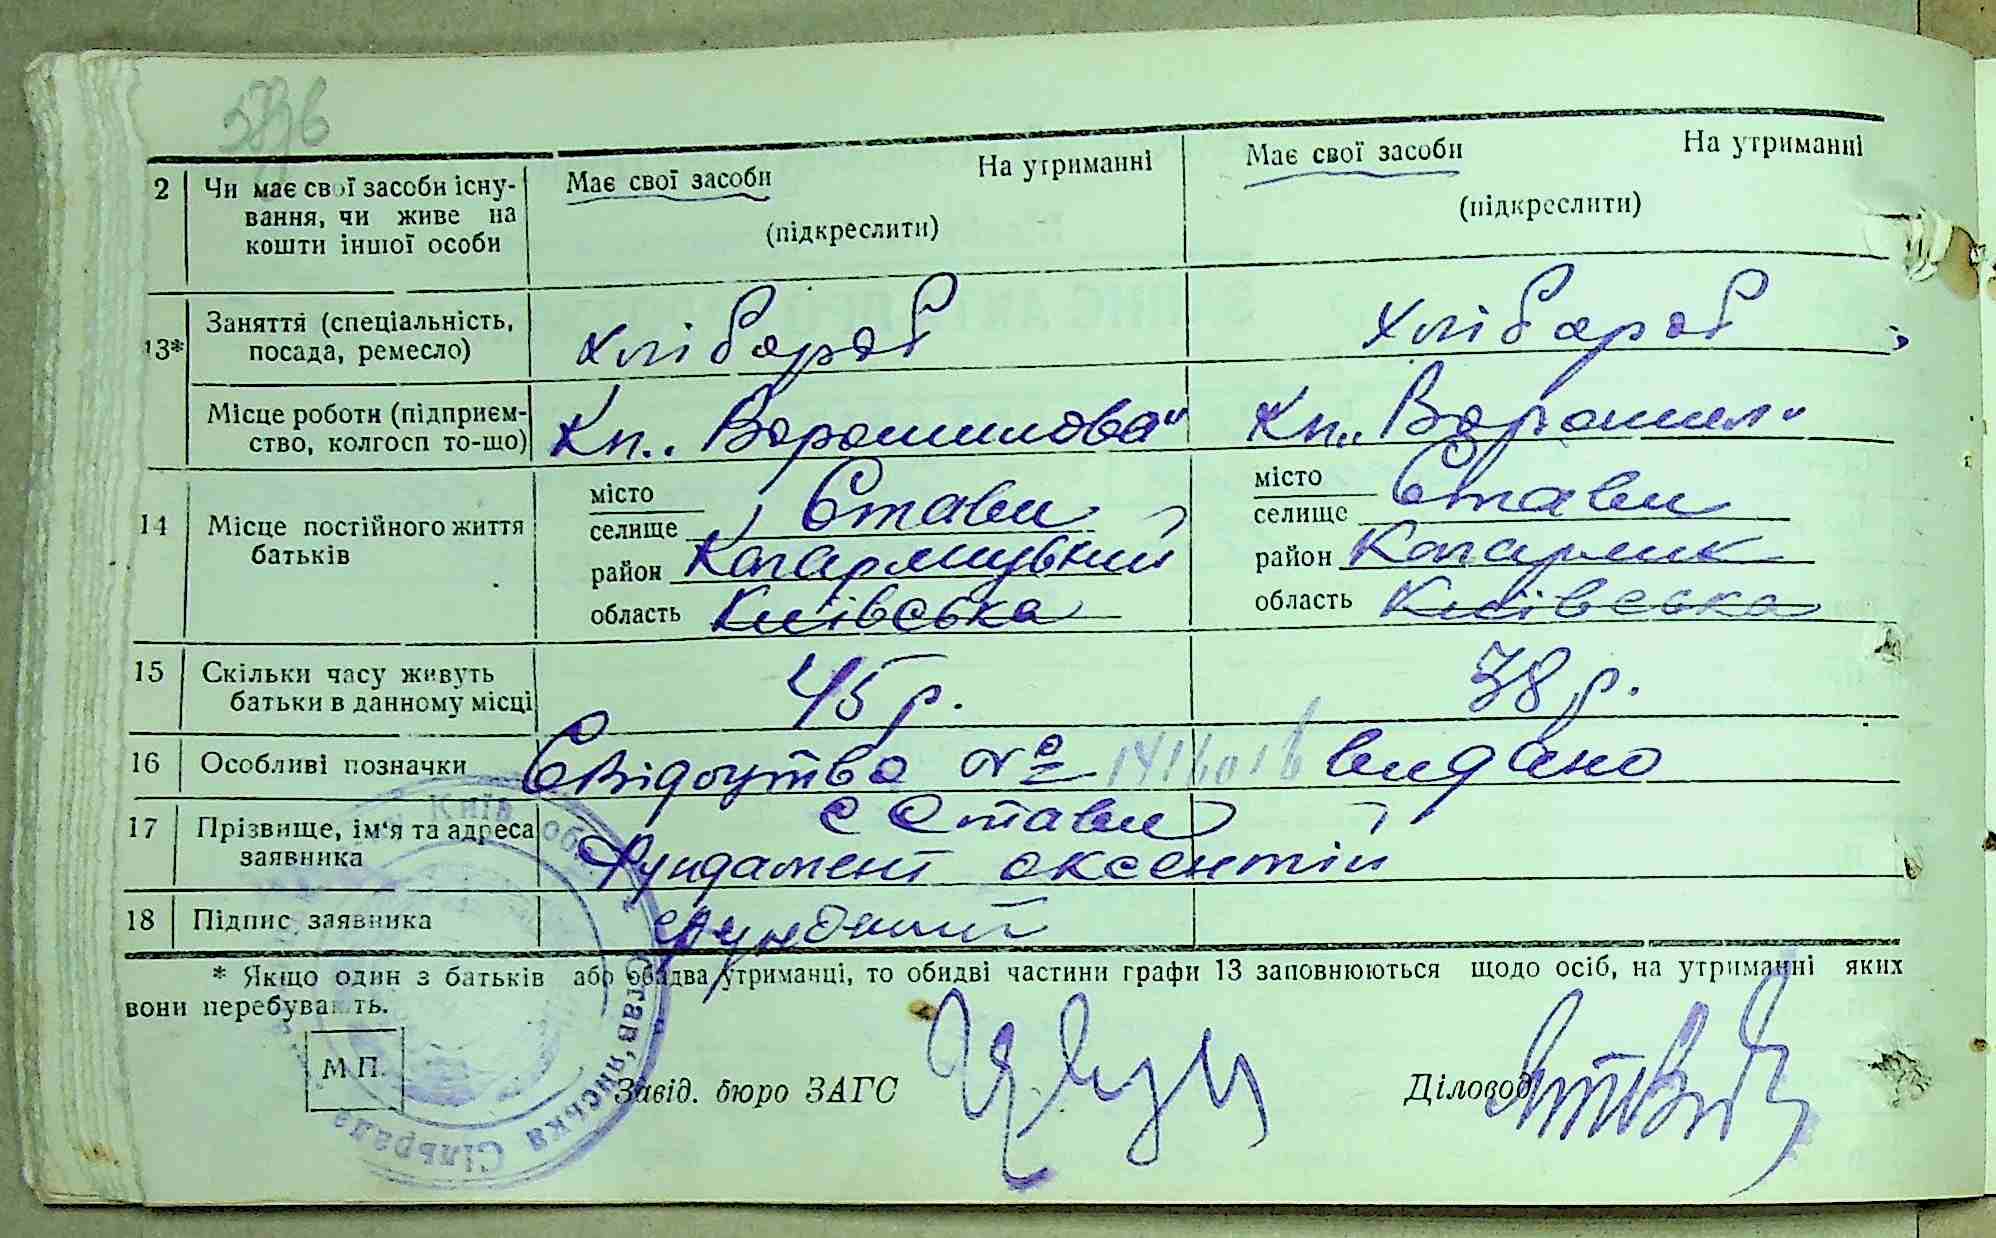 2 Чи має свої засоби існу- Має свої засоби На утриманні Має свої засоби На утриманні
вання, чи живе на
кошти іншої особи (підкреслити) (підкреслити)
13* Заняття (спеціальність, посада, ремесло) хлібороб хлібороб
Місце роботи (підприєм-
ство, колгосп то-що) Кп. „Ворошилова" Кп. „Ворошил"
14 Місце постійного життя
батьків
місто
селище Стави
район Кагарлицький
область Київська
місто
селище Стави
район Кагарлик
область Київська
15 Скільки часу живуть
батьки в данному місці 45 р. 38 р.
16 Особливі позначки Свідоцтво № видано
17 Прізвище, ім'я та адреса
заявника
с Стави
Фундамент оксентій
18 Підпис заявника
* Якщо один з батьків або обидва утриманці, то обидві частини графи 13 заповнюються щодо осіб, на утриманні яких
вони перебувають.
М.П.
Завід. бюро ЗАГС Діловод
Київ обл
Став'янська Сільрада